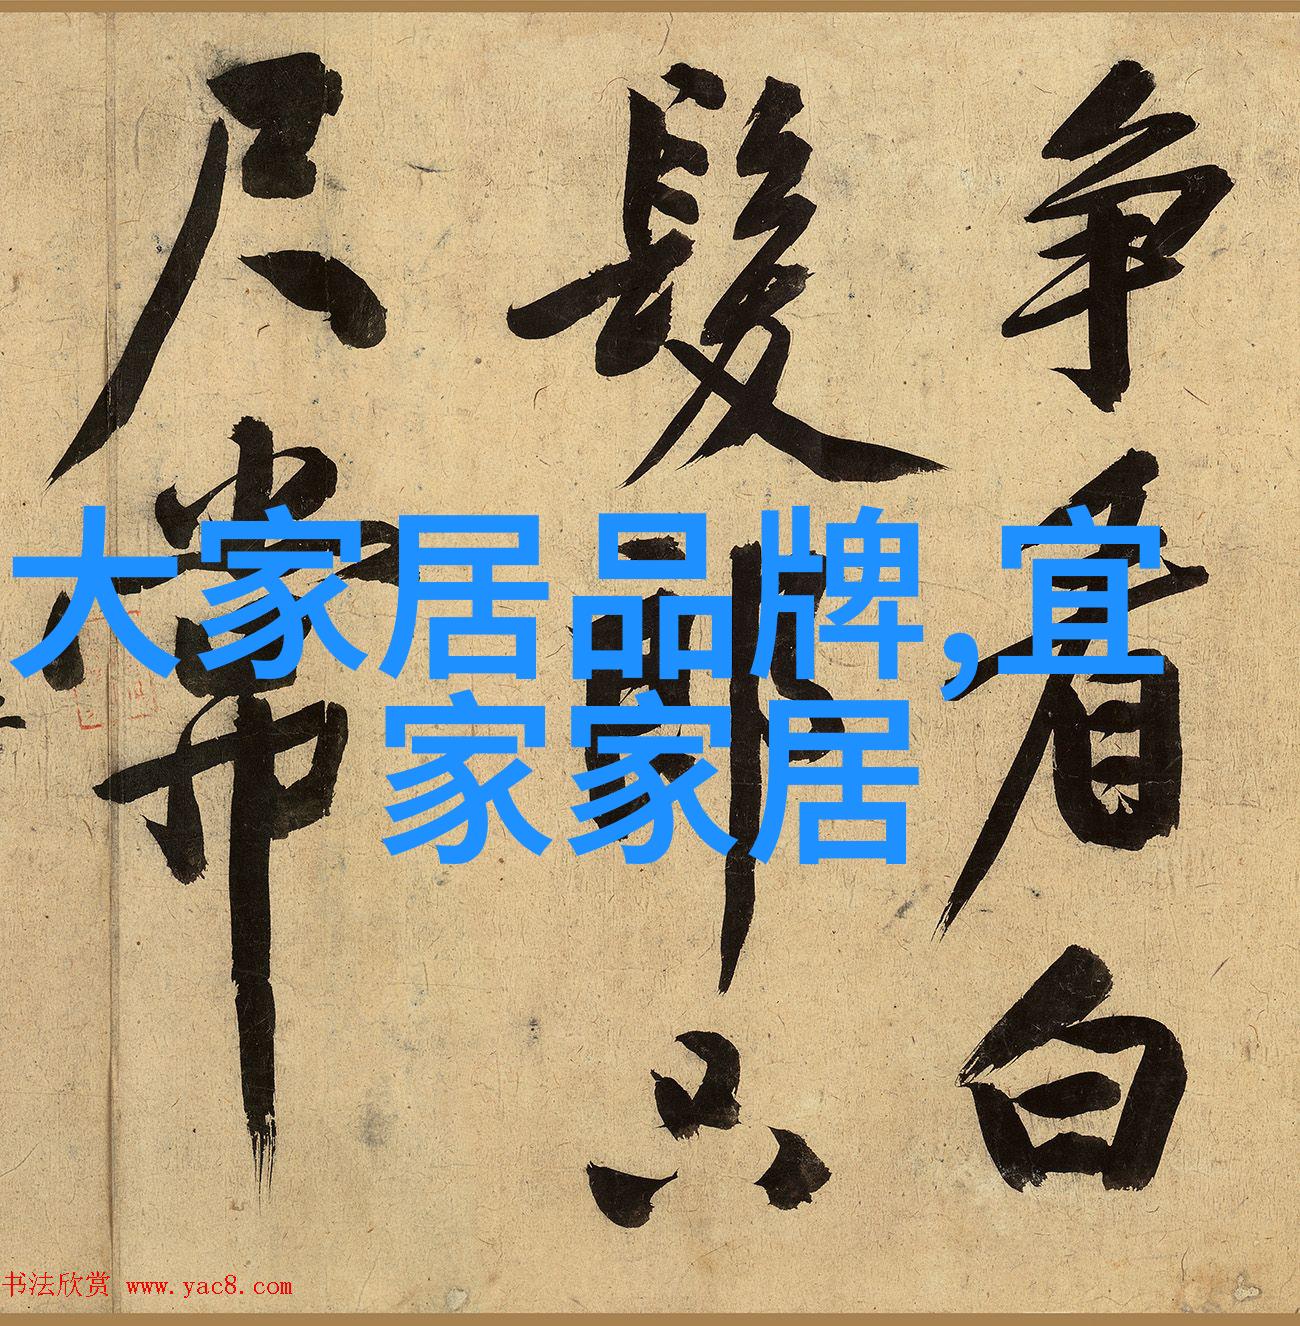 争看白
髮郎只
尺常
大家居品牌,宜
家家居
书法欣赏 www.yac8.com